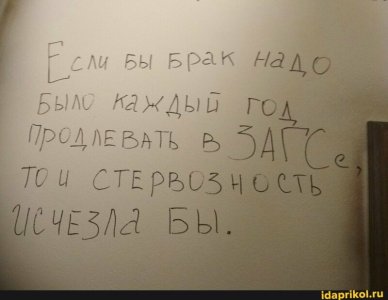 Если бы брак надо
было каждый год
продлевать в ЗАГСе,
то и стервозность
исчезла бы.
idaprikol.ru